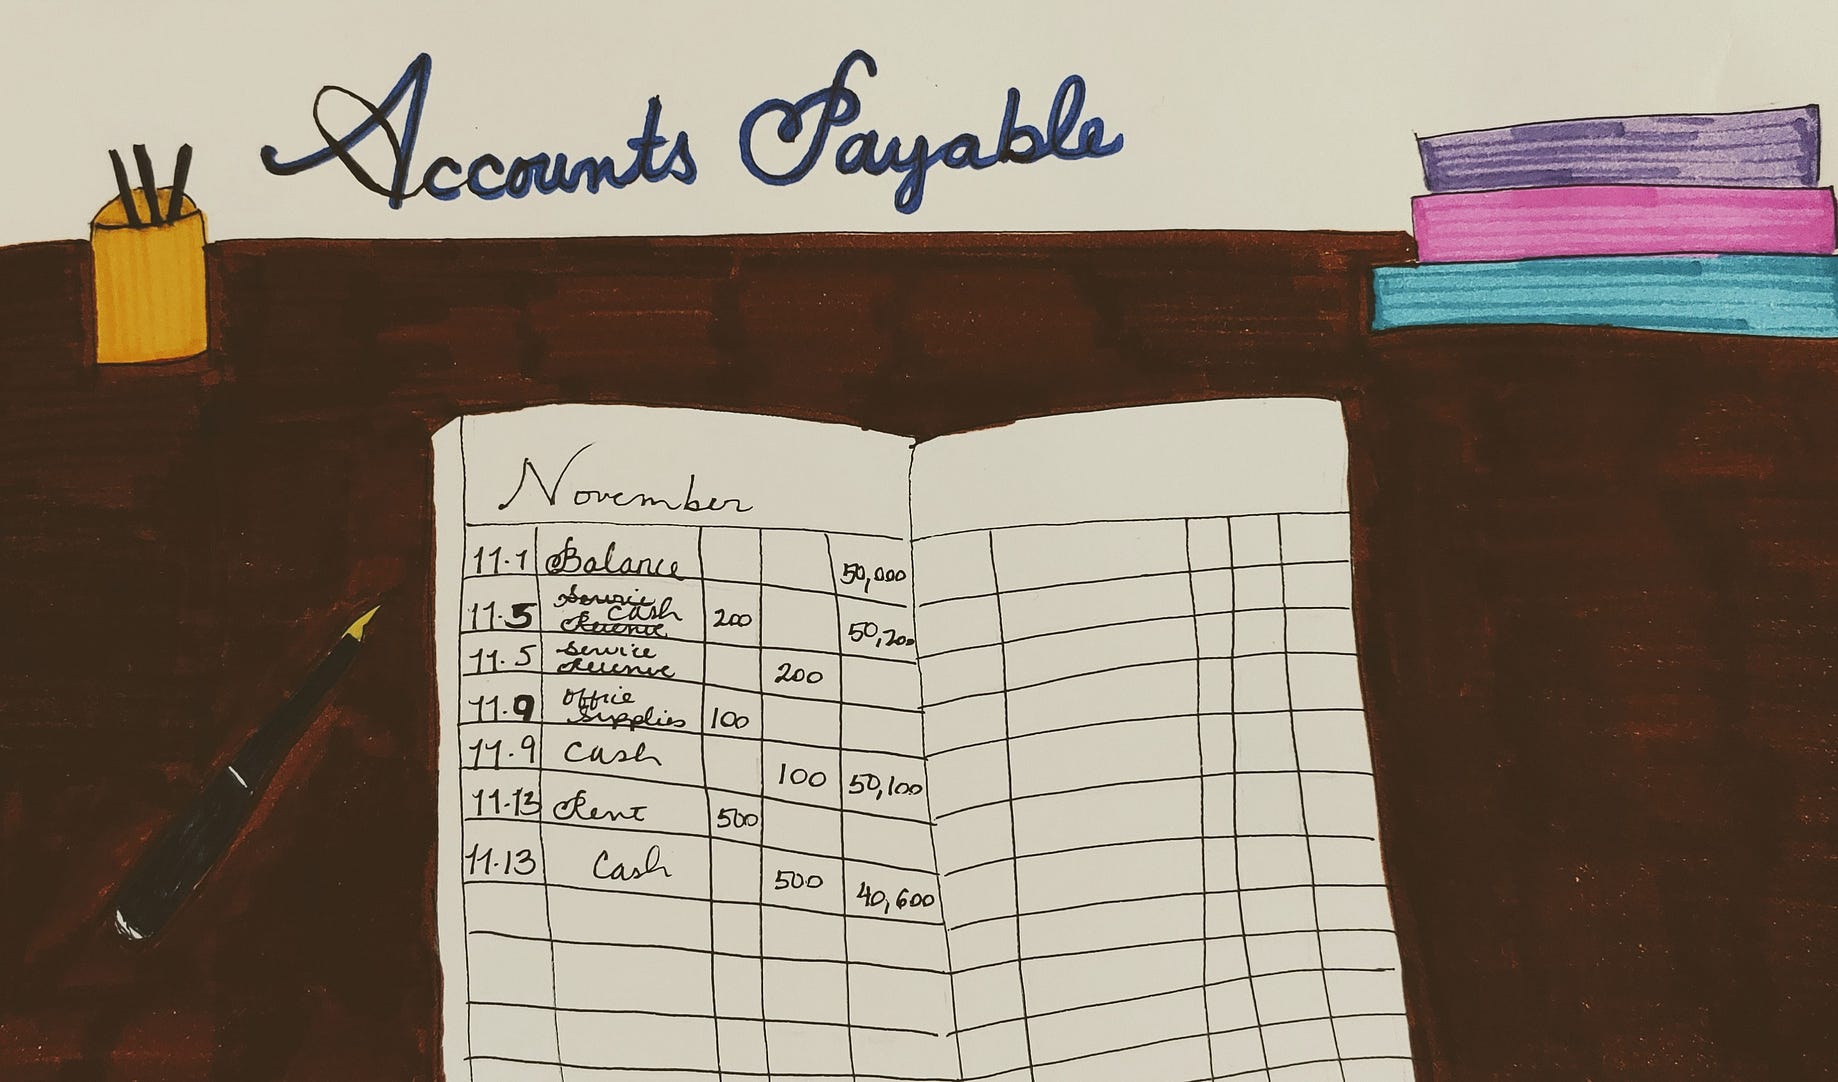 Accounts Payable
November
11.1 Balance 50,000
11.5 Service Revenue Cash 200 50,200
11.5 Service Revenue 200
11.9 Office Supplies 100
11.9 Cash 100 50,100
11.13 Rent 500
11.13 Cash 500 40,600